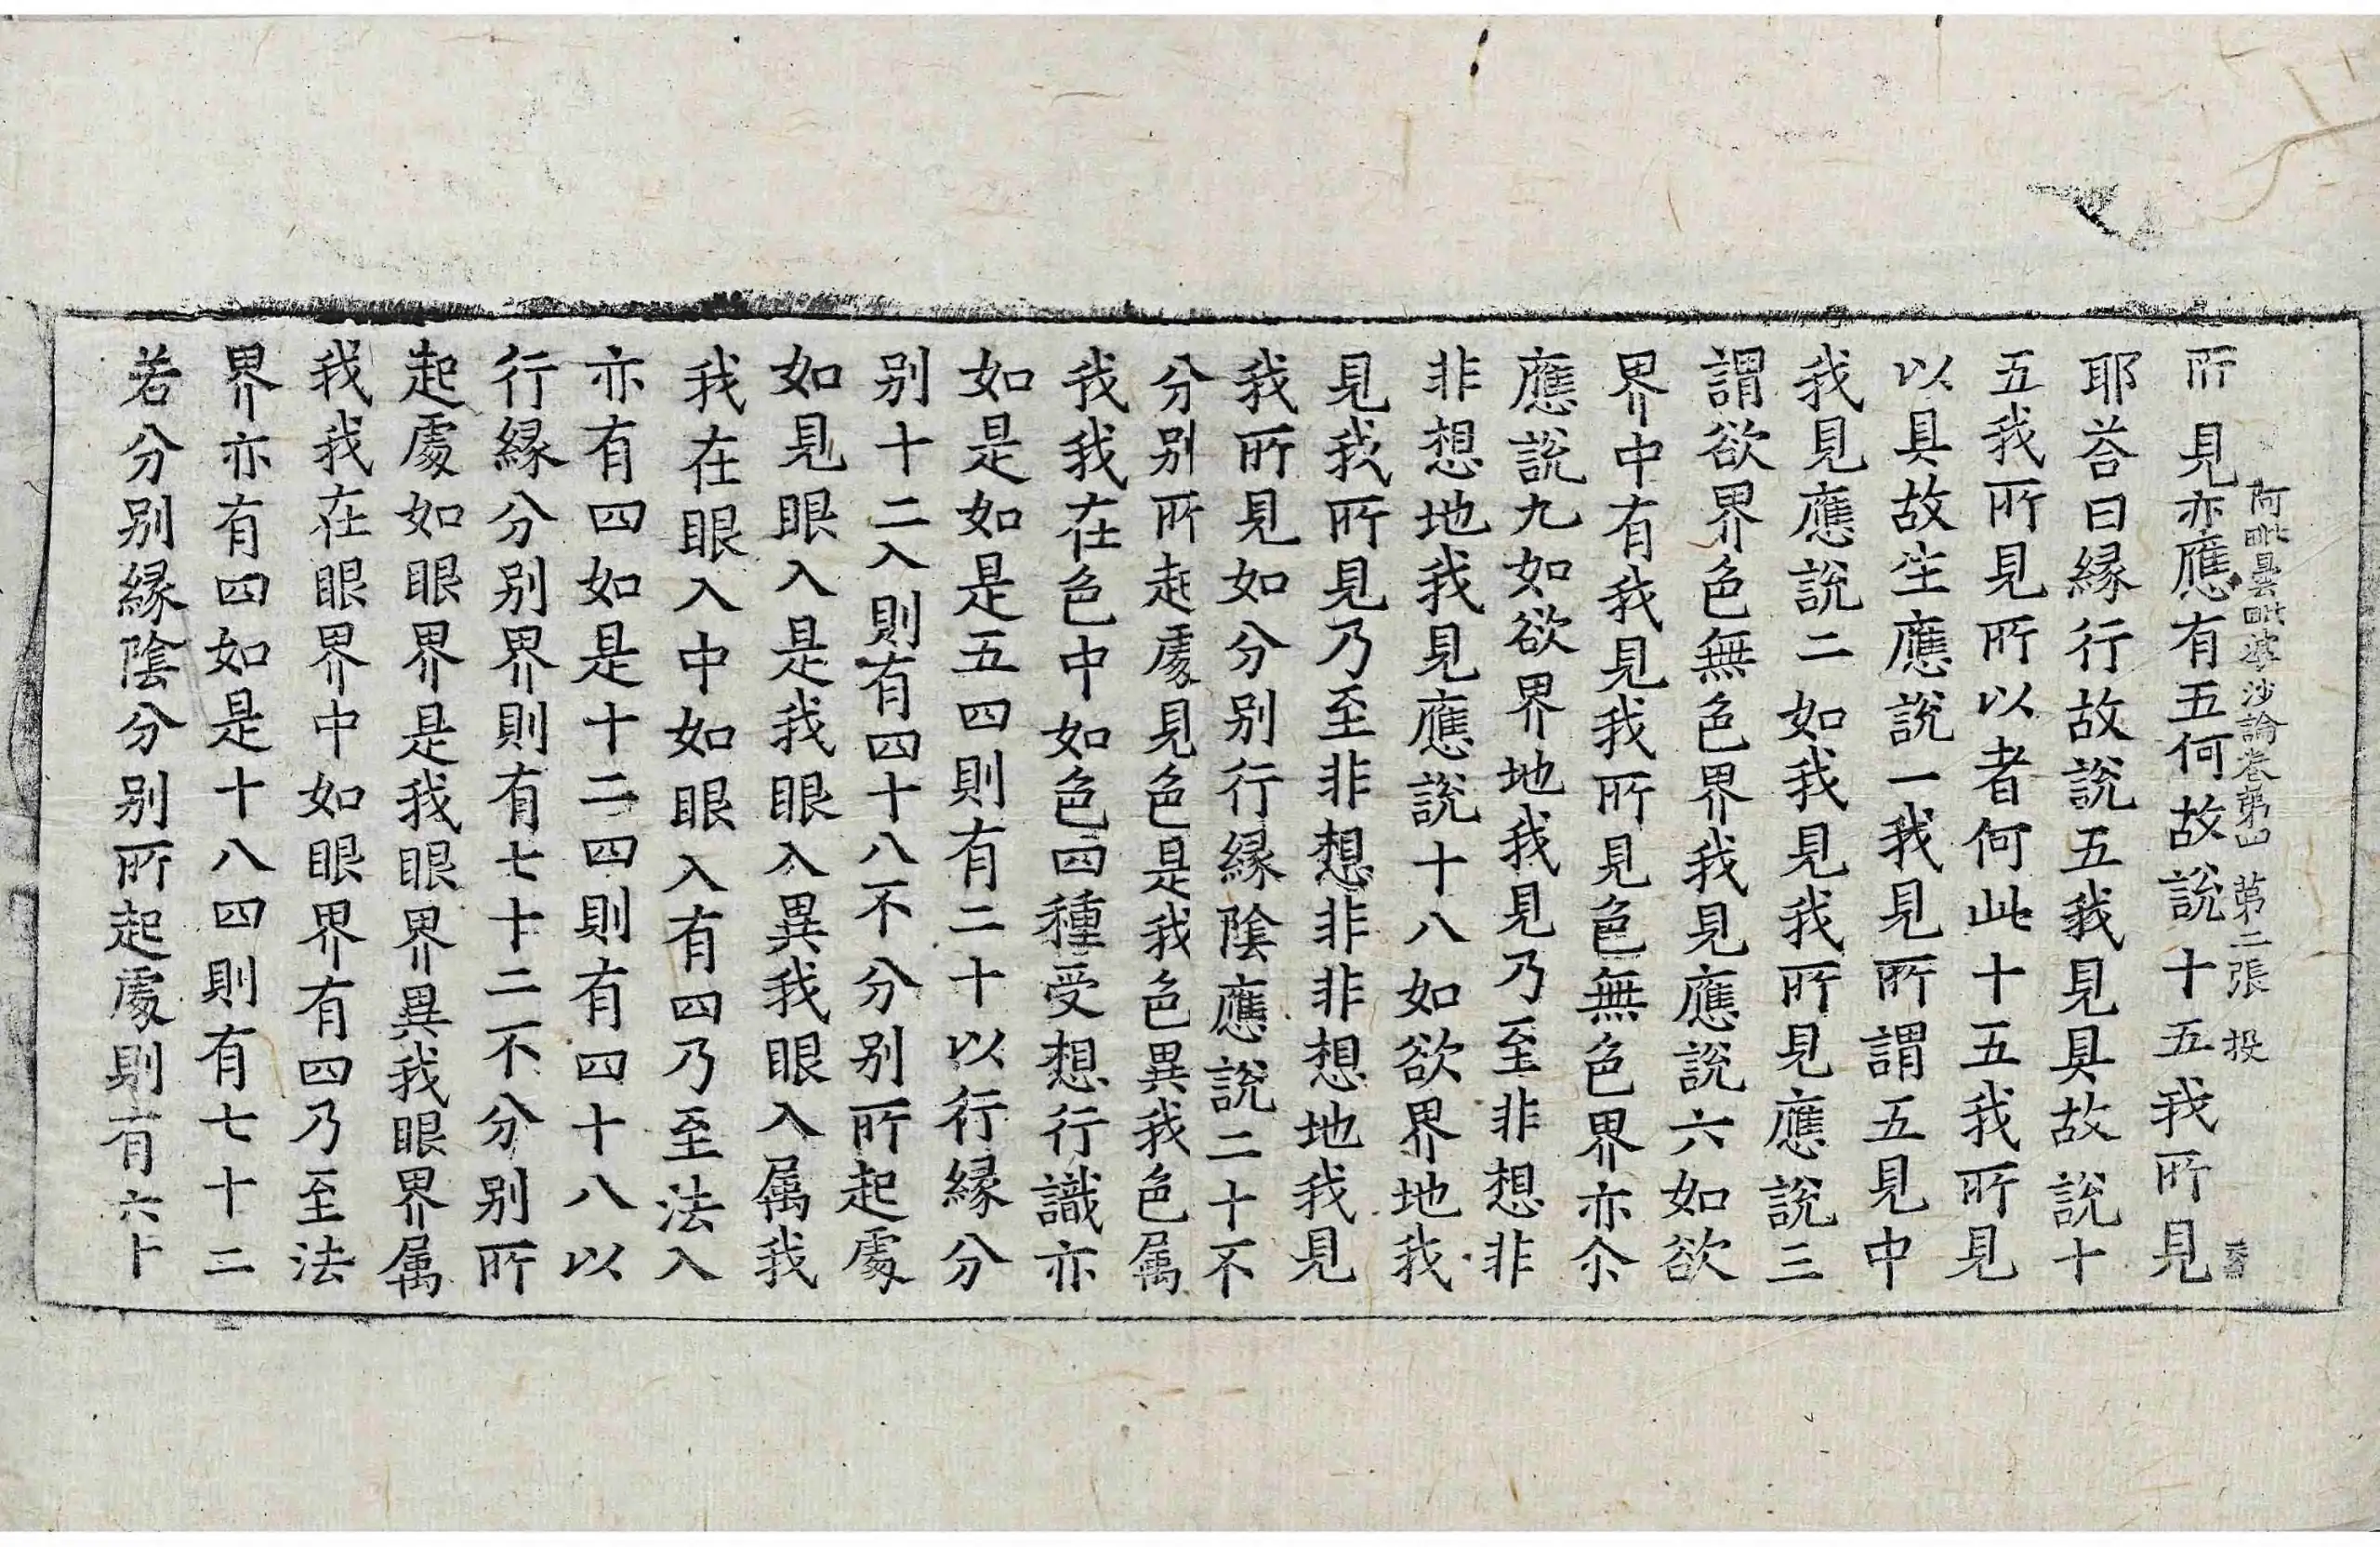 阿毗曇毗婆沙論卷第四 第二張 投
所見亦應有五何故說十五我所見
耶荅曰縁行故說五我見具故說十
五我所見所以者何此十五我所見
以具故生應說一我見所謂五見中
我見應說二如我見我所見應說三
謂欲界色無色界我見應說六如欲
界中有我見我所見色無色界亦尒
應說九如欲界地我見乃至非想非
非想地我見應說十八如欲界地我
見我所見乃至非想非非想地我見
我所見如分別行縁陰應說二十不
分別所起處見色是我色異我色属
我我在色中如色四種受想行識亦
如是如是五四則有二十以行縁分
別十二入則有四十八不分別所起處
如見眼入是我眼入異我眼入属我
我在眼入中如眼入有四乃至法入
亦有四如是十二四則有四十八以
行縁分別界則有七十二不分別所
起處如眼界是我眼界異我眼界属
我我在眼界中如眼界有四乃至法
界亦有四如是十八四則有七十二
若分別縁陰分別所起處則有六十